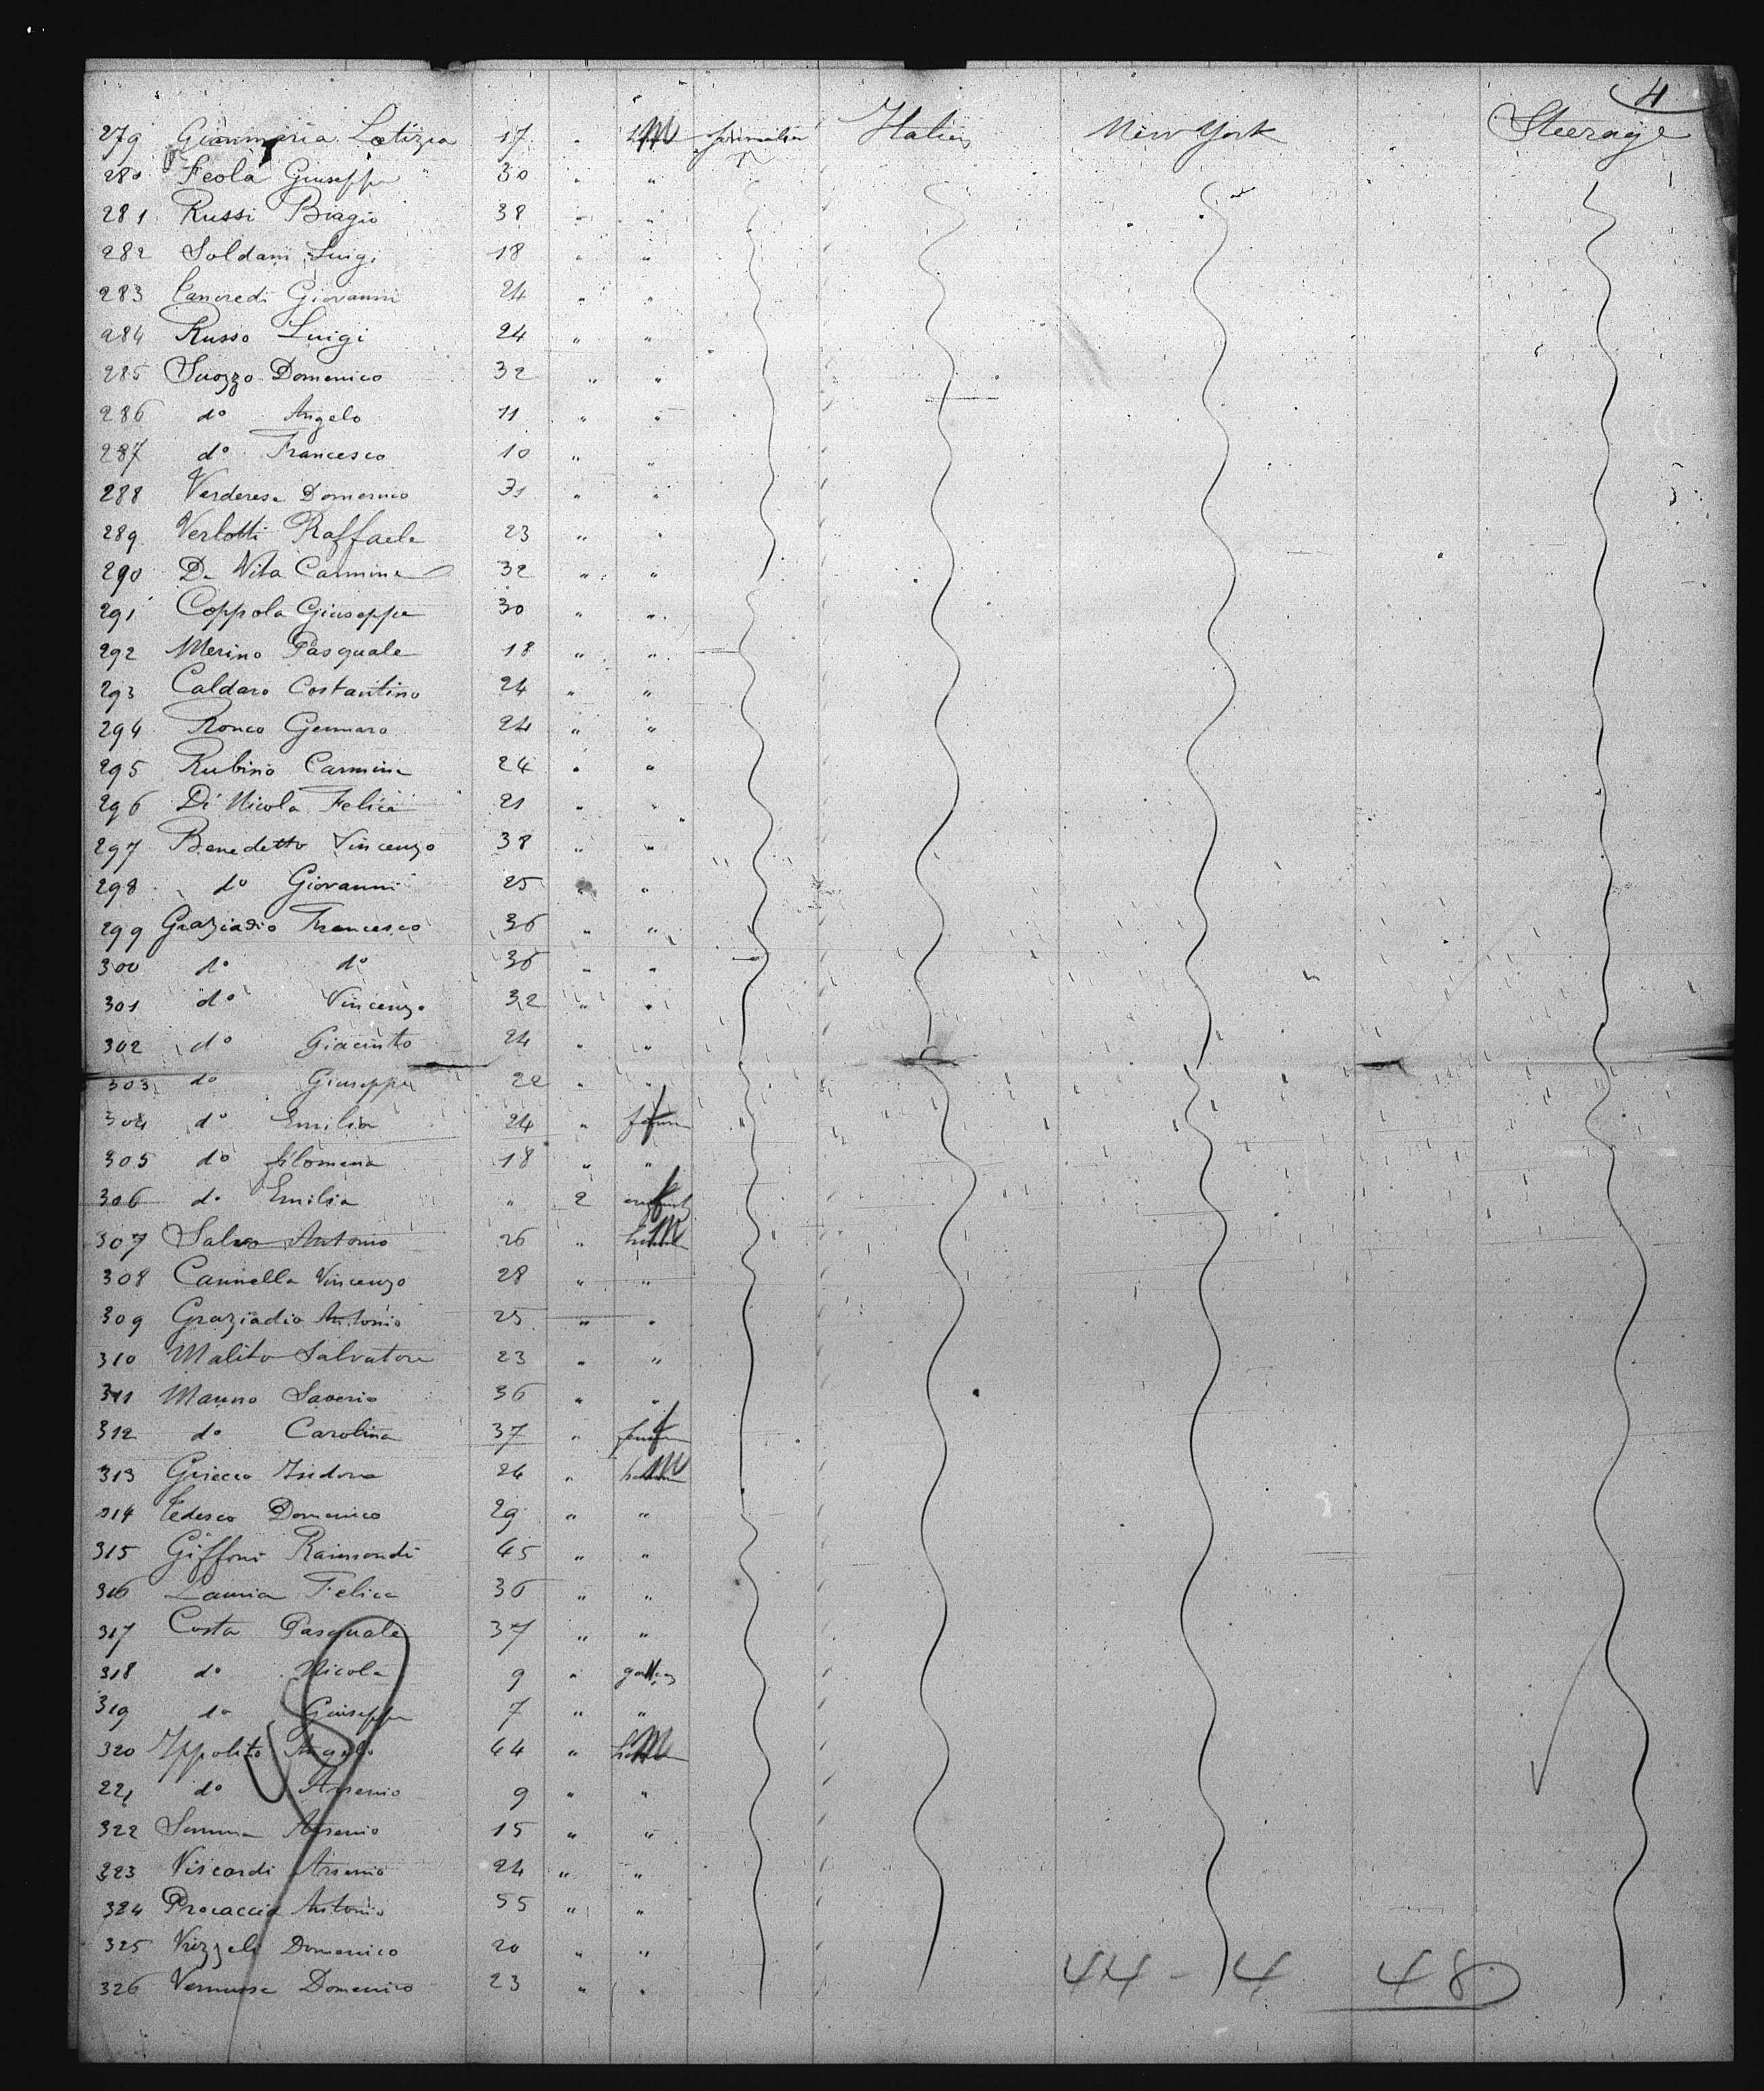 4
279 Gianmaria Letizia 17 " M journalier Italien New York Steerage
280 Feola Giuseppe 30 " "
281 Russi Biagio 38 " "
282 Soldani Luigi 18 " "
283 Tancredi Giovanni 24 " "
284 Russo Luigi 24 " "
285 Suozzo Domenico 32 " "
286 do Angelo 11 " "
287 do Francesco 10 " "
288 Verderese Domenico 31 " "
289 Verlotti Raffaele 23 " "
290 De Vita Carmine 32 " "
291 Coppola Giuseppe 30 " "
292 Merino Pasquale 18 " "
293 Caldaro Costantino 24 " "
294 Ronco Gennaro 24 " "
295 Rubino Carmine 24 " "
296 Di Nicola Felice 21 " "
297 Benedetto Vincenzo 38 " "
298 do Giovanni 25 " "
299 Graziadio Francesco 36 " "
300 do do 36 " "
301 do Vincenzo 32 " "
302 do Giacinto 24 " "
303 do Giuseppe 22 " "
304 do Emilia 24 " f
305 do filomena 18 " "
306 do Emilia " 2 enfant
307 Salvo Antonio 26 " M
308 Cannella Vincenzo 28 " "
309 Graziadio Antonio 25 " "
310 Malito Salvatore 23 " "
311 Manno Saverio 36 " "
312 do Carolina 37 " f
313 Griecco Isidoro 26 " M
314 Tedesco Domenico 29 " "
315 Giffoni Raimondi 45 " "
316 Lauria Felice 36 " "
317 Costa Pasquale 37 " "
318 do Nicola 9 " garçon
319 do Giuseppe 7 " "
320 Ippolito Angelo 44 " M
221 do Arsenio 9 " "
322 Summa Arsenio 15 " "
323 Viscardi Arsenio 24 " "
324 Procaccio Antonio 55 " "
325 Vrizzeli Domenico 20 " "
326 Domenico 23 " "
44 - 4 48